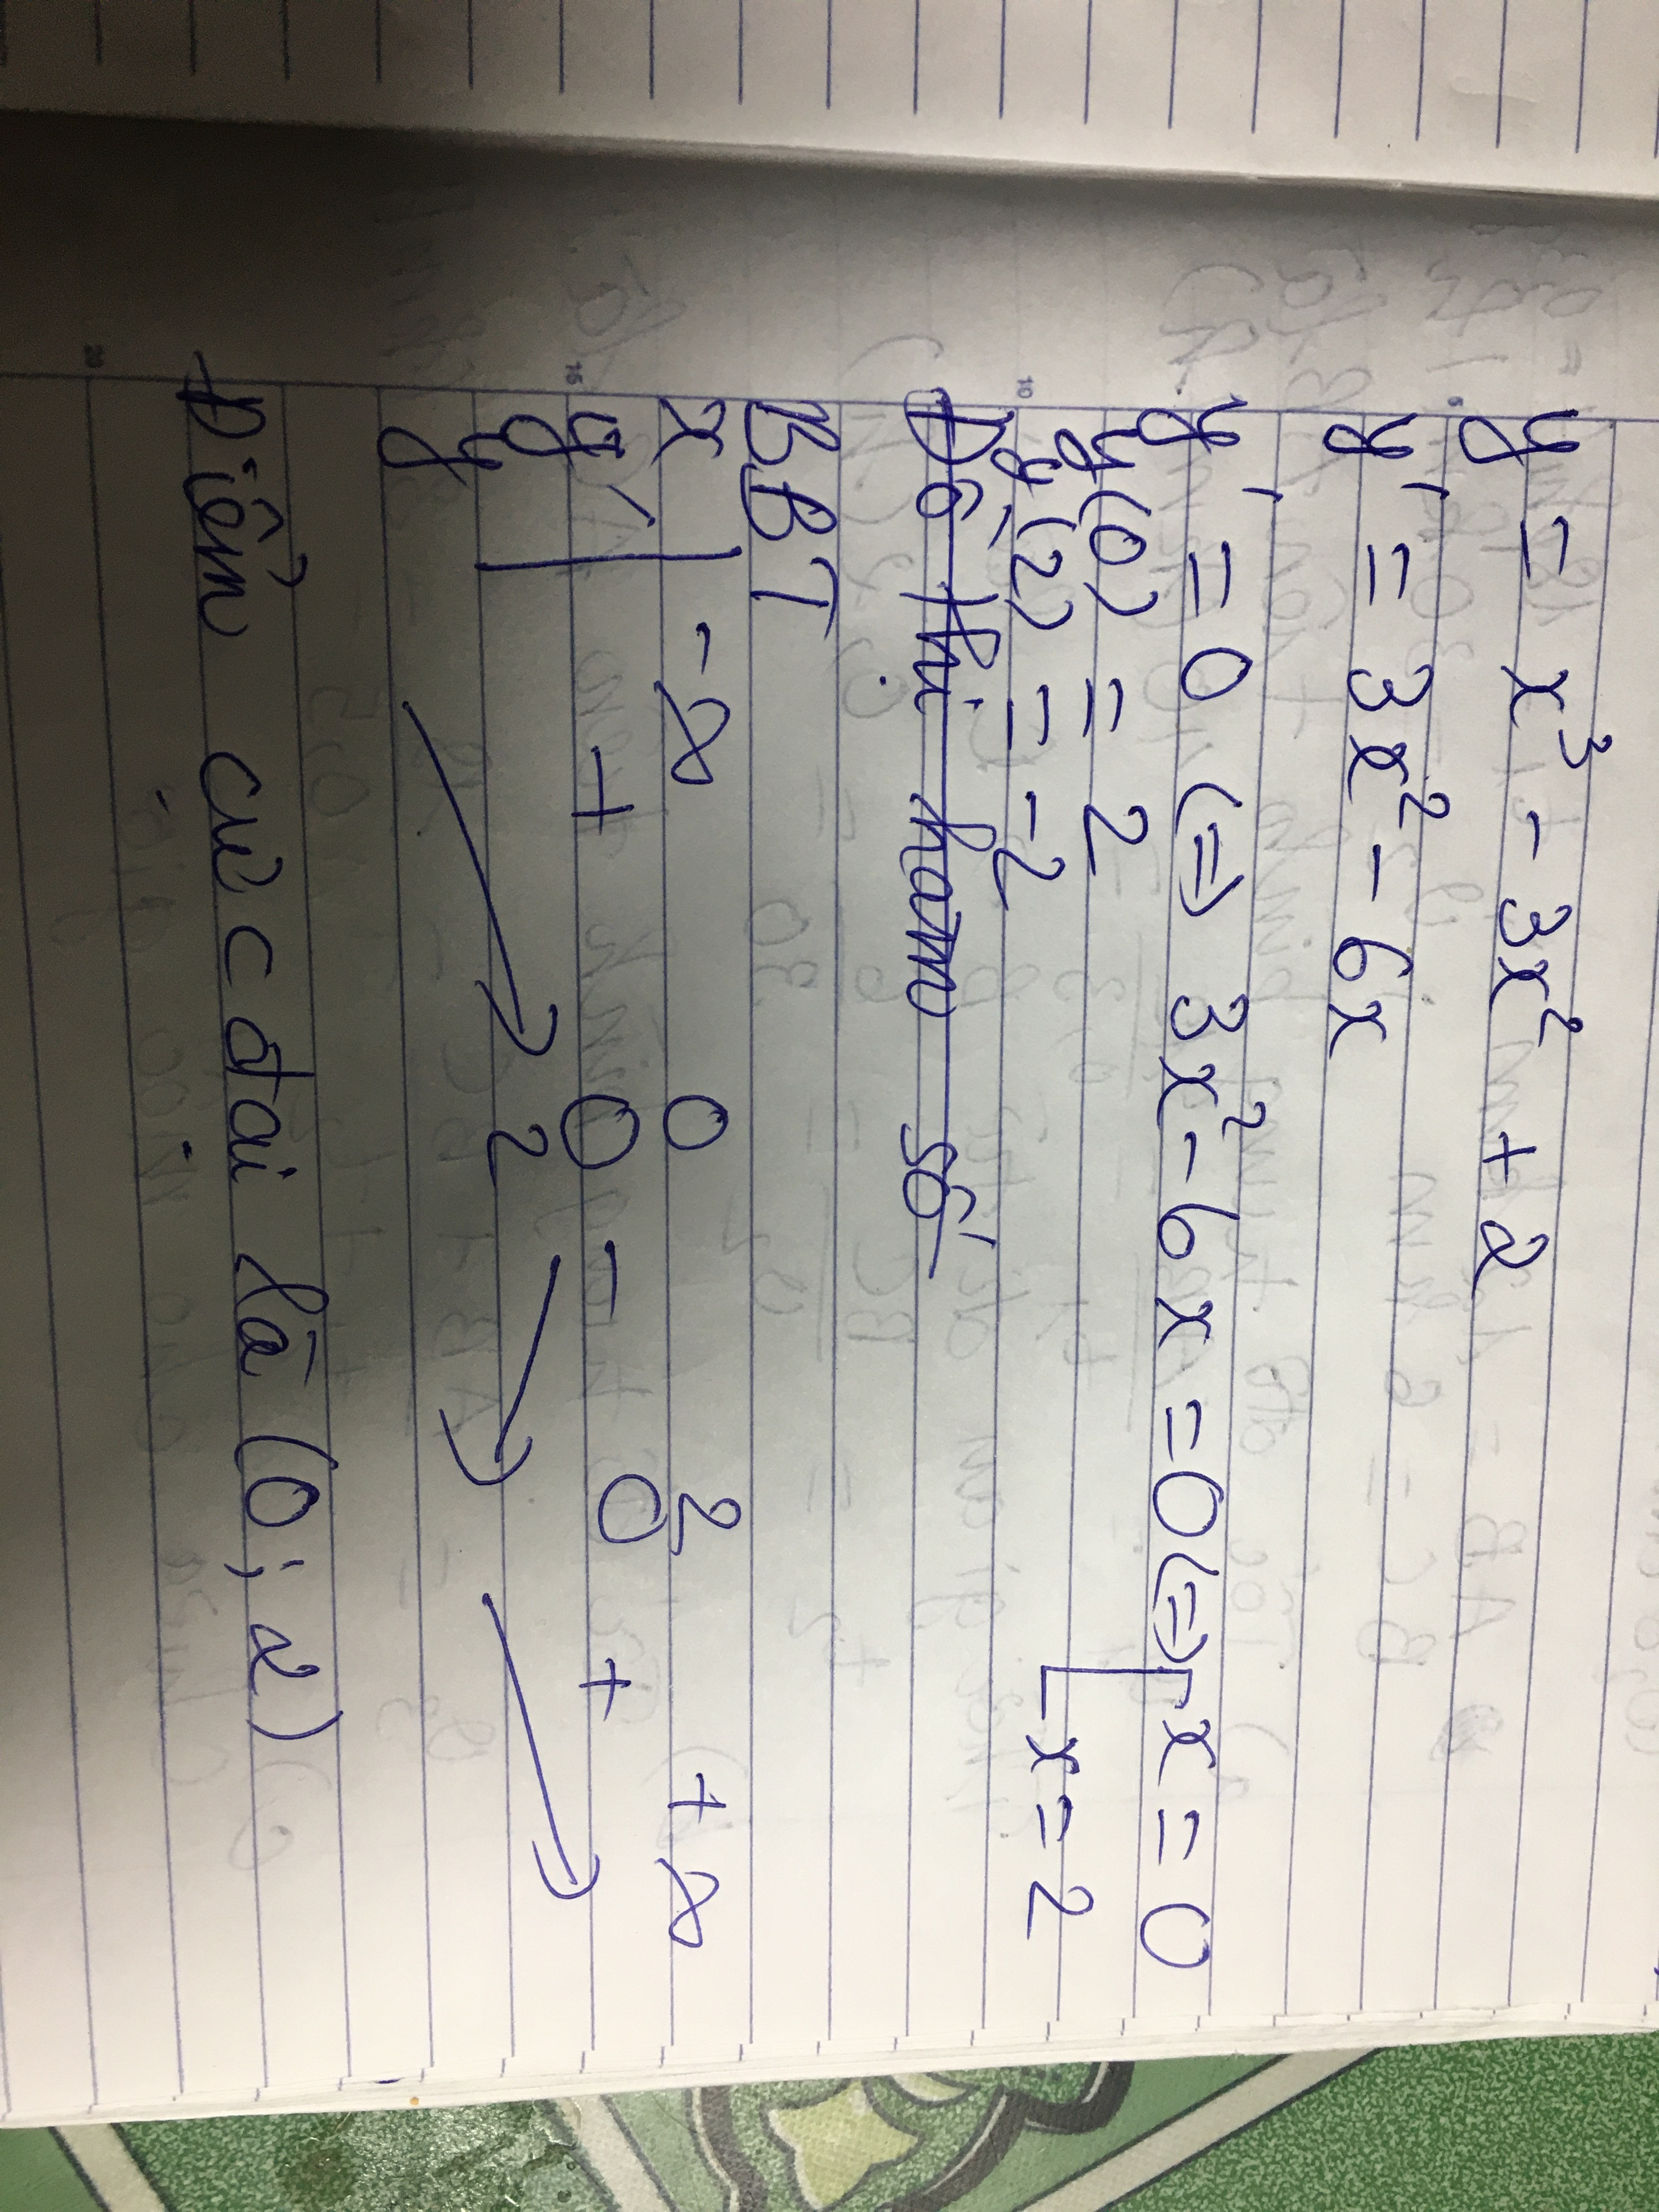 y = x³ - 3x² + 2
y' = 3x² - 6x
y' = 0 (=) 3x² - 6x = 0 (=) [ x = 0
x = 2
y(0) = 2
y(2) = -2
Đồ thị hàm số
BBT
x -∞ 0 2 +∞
y' + 0 - 0 +
y 2
Điểm cực đại là (0; 2)
5
10
15
20